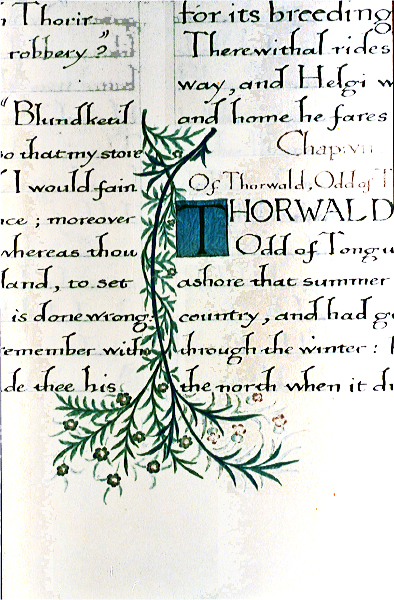 Thorir
robbery?"
"Blundketil
so that my store
I would fain
nce; moreover
whereas thou
land, to set
is done wrong:
remember with
de thee his
for its breeding
Therewithal rides
way, and Helgi w
and home he fares
Chap: VII
Of Thorwald, Odd of T
THORWALD
Odd of Tongu
ashore that summer
country, and had g
through the winter:
the north when it d